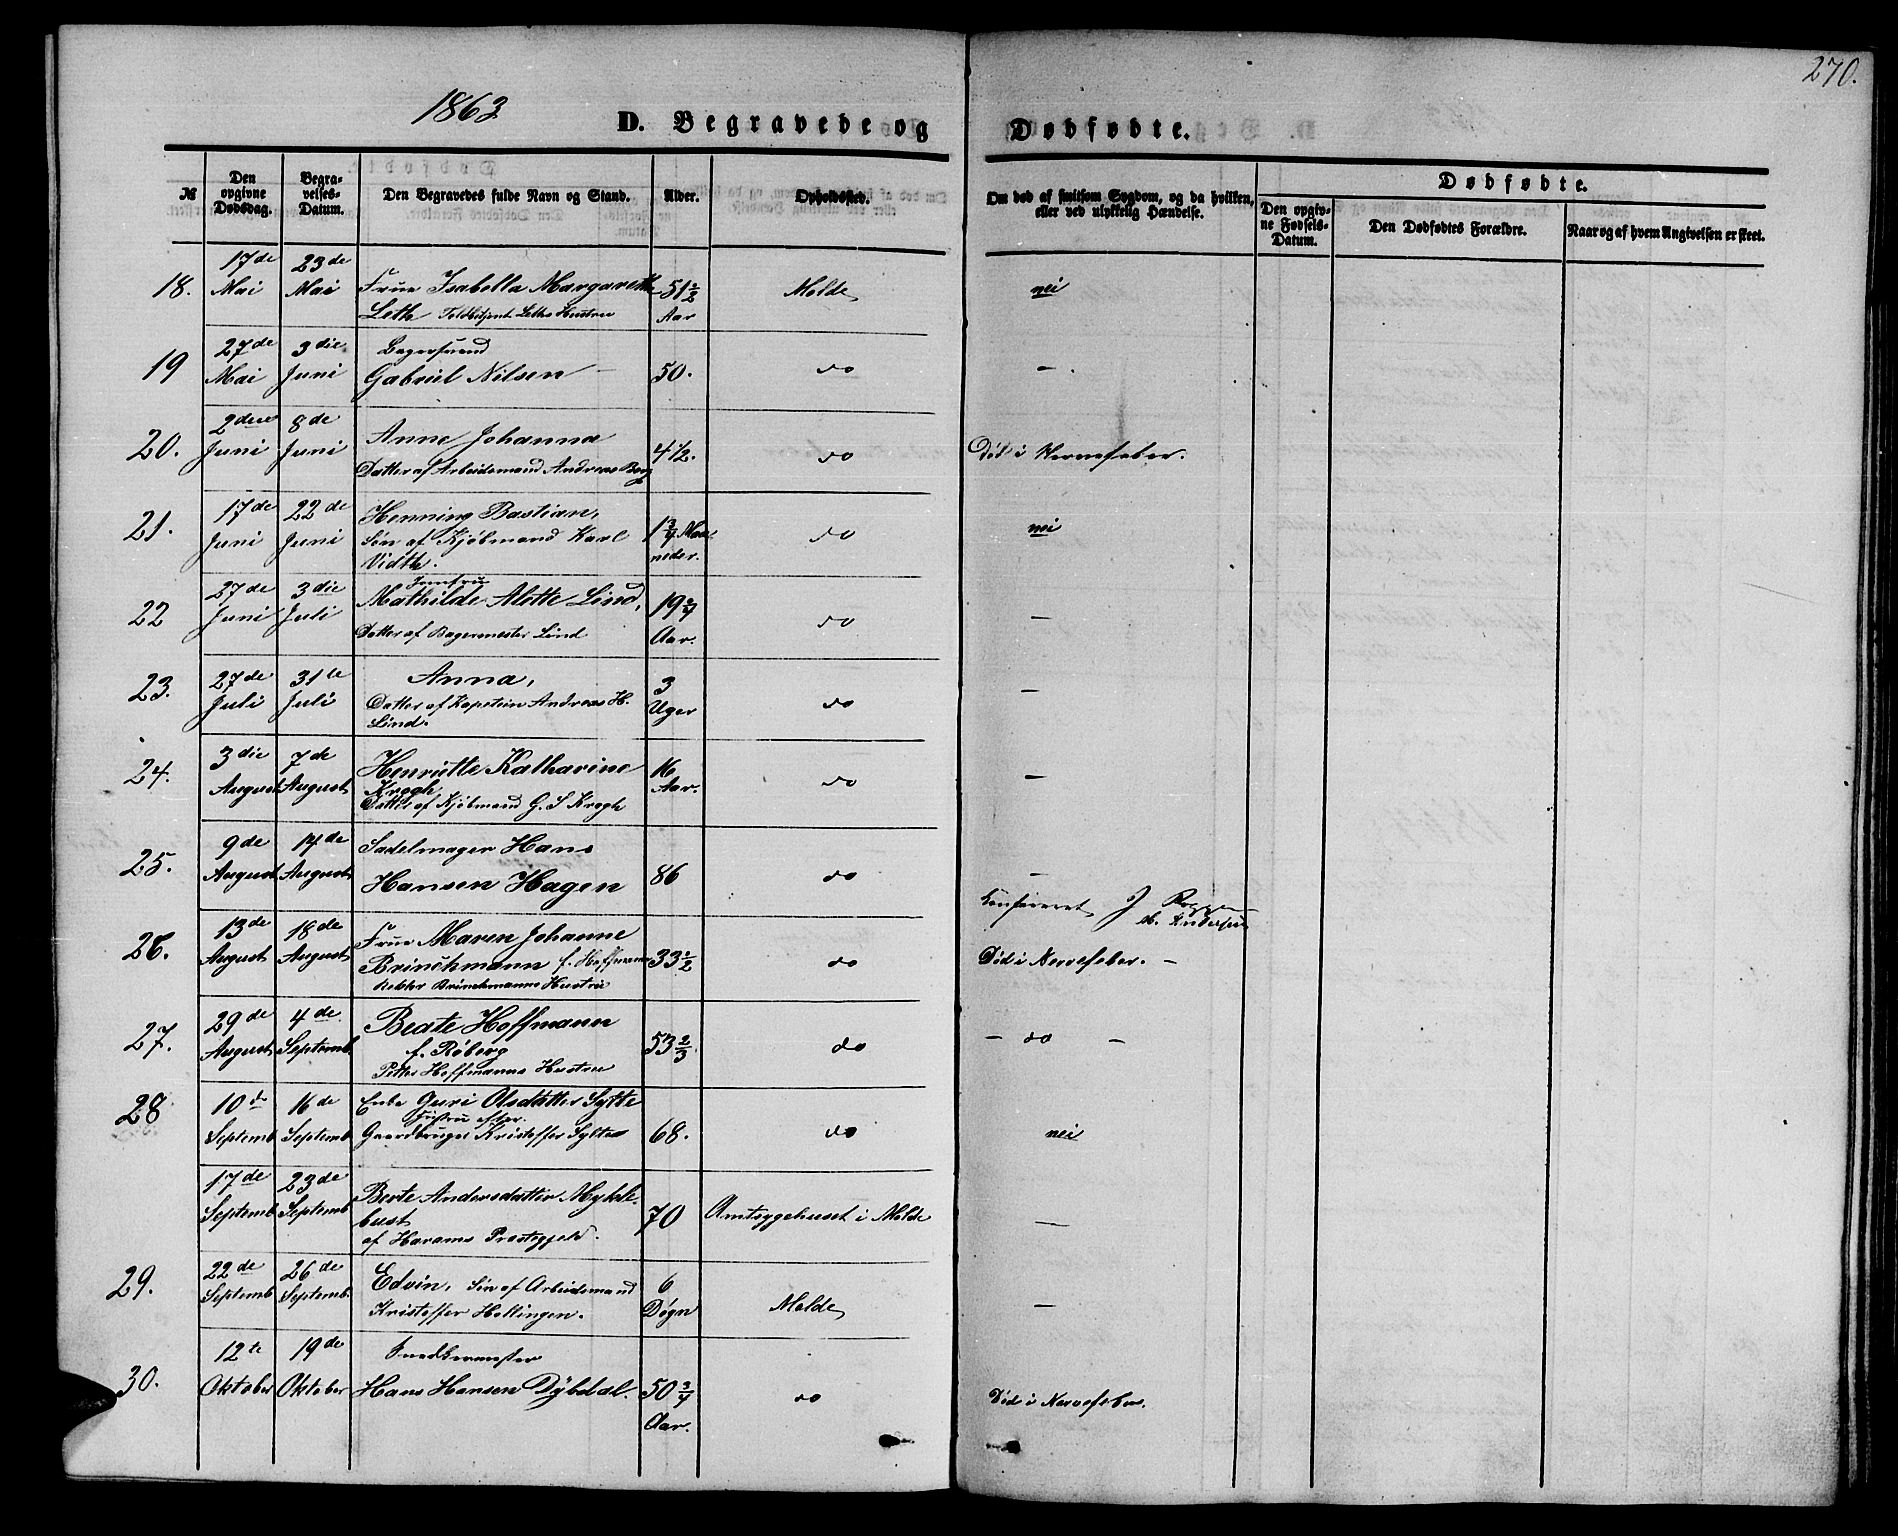 270.
1863
D. Begravede og Dødfødte.
№
Den opgivne Dødsdag.
Begravelses-Datum.
Den Begravedes fulde Navn og Stand.
Alder.
Opholdssted.
Om død af smitsom Sygdom, og da hvilken, eller ved ulykkelig Hændelse.
Dødfødte.
Den opgivne Fødsels-Datum.
Den Dødfødtes Forældre.
Naar og af hvem Angivelsen er skeet.
18. 17de Mai 23de Mai Frue Isabella Margarethe Leth Toldbetjent Leths Hustru 51 1/2 Aar Molde nei
19 27de Mai 3die Juni Bagersvend Gabriel Nilsen – 50. do – .
20. 2den Juni 8de Juni Anne Johanna Datter af Arbeidsmand Andreas Berg 4 1/2. do Død i Nervefeber.
21. 17de Juni 22de Juni Henning Bastian, Søn af Kjøbmand Karl Vidth. 1 3/4 Maaneder. do nei
22 27de Juni 3die Juli Jomfru Mathilde Alette Lind, Datter af Bagermester Lind 19 3/4 Aar. do –
23. 27de Juli 31te Juli Anna, Datter af Kaptein Andreas H. Lind. 3 Uger do –
24. 3die August 7de August Henriette Katharine Krogh, Datter af Kjøbmand G. S Krogh 16 Aar. do –
25. 9de August 14de August Sadelmager Hans Hansen Hagen 86 do –
Konfereret J
26. 13de August 18de August Frue Maren Johanne Brinchmann f. Hoffmann Rektor Brinchmanns Hustru 33 1/2 do Død i Nervefeber. –
27. 29de August 4de Septemb. Beate Hoffmann f. Røberg Petter Hoffmanns Hustru 53 2/3. do – do –
28 10de Septemb 16de Septemb. Enke Guri Olsdatter Sylte efter Gaardbruger Kristoffer Sylte 68. do nei
17de Septemb 23de Septemb Berte Andersdatter Myklebust af Harams Prestegjeld. 70 Amtsygehuset i Molde –
29. 22de Septemb 26de Septemb. Edvin, Søn af Arbeidsmand Kristoffer Hollingen. 6 Døgn Molde –
30. 12te Oktober 19de Oktober Snedkermester Hans Hansen Dybdal. 50 3/4 Aar. do Død i Nervefeber.